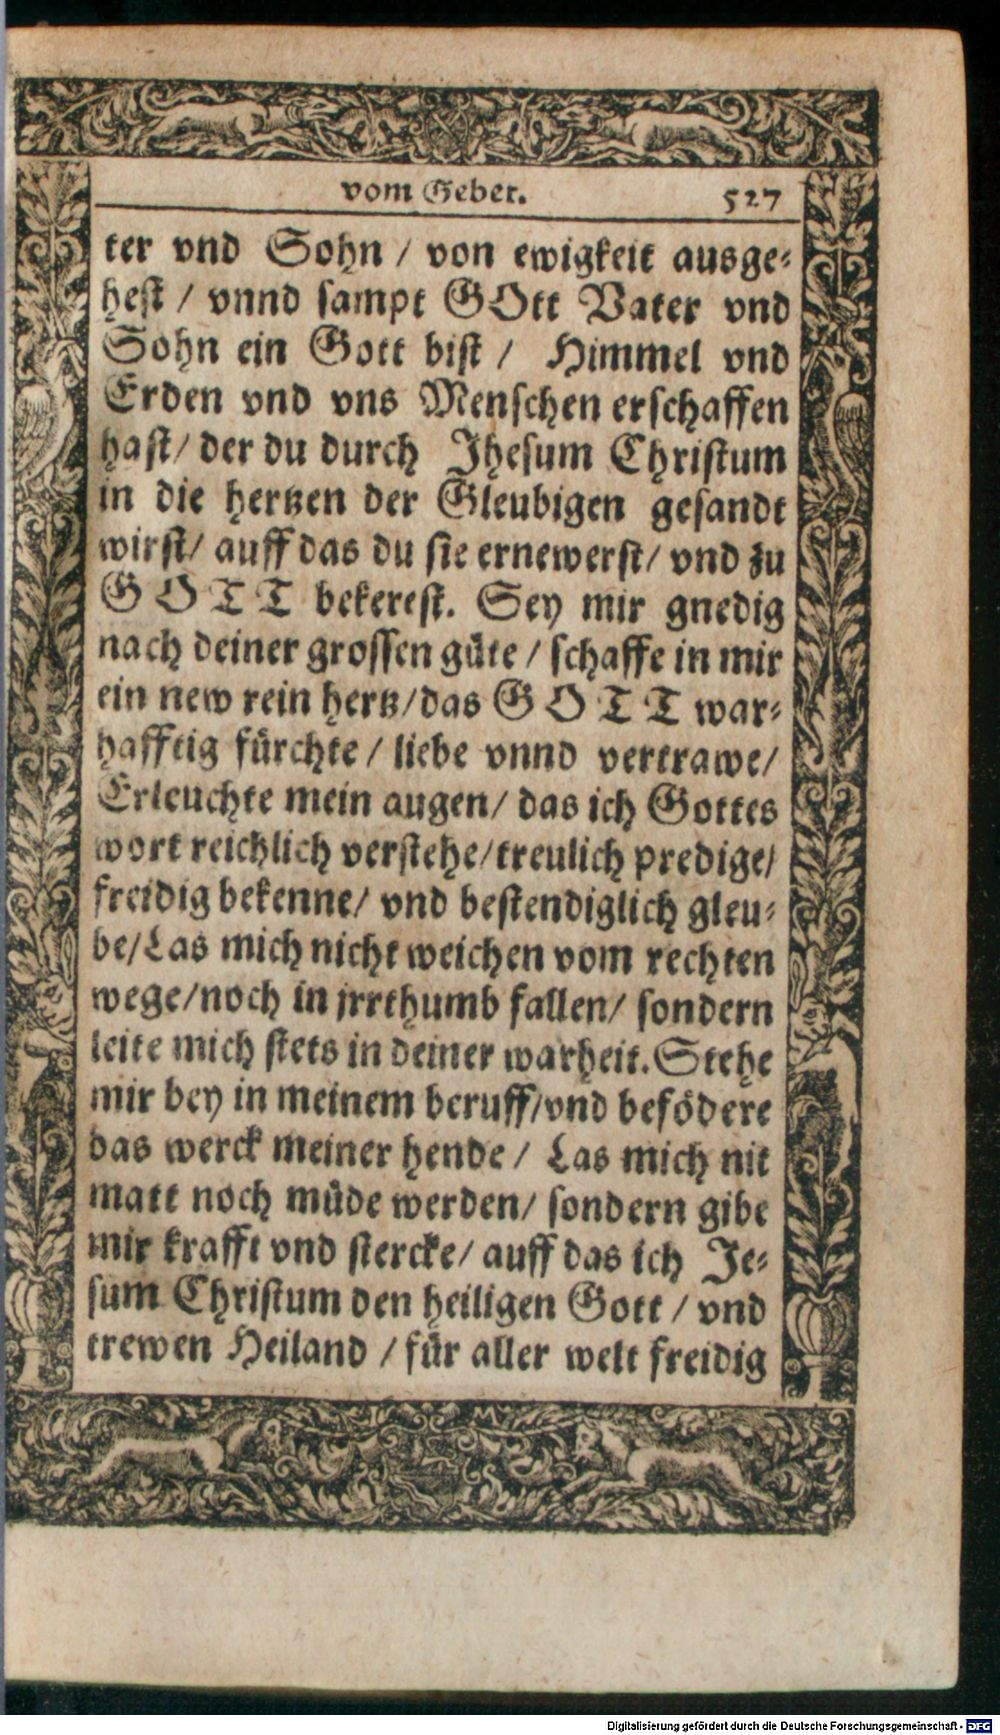 vom Gebet. 527
ter vnd Sohn / von ewigkeit ausge-
hest / vnnd sampt GOtt Vater vnd
Sohn ein Gott bist / Himmel vnd
Erden vnd vns Menschen erschaffen
hast/ der du durch Jhesum Christum
in die hertzen der Gleubigen gesandt
wirst/ auff das du sie ernewerst/ vnd zu
GOTT bekerest. Sey mir gnedig
nach deiner grossen güte / schaffe in mir
ein new rein hertz/das GOTT war-
hafftig fürchte / liebe vnnd vertrawe/
Erleuchte mein augen/ das ich Gottes
wort reichlich verstehe/treulich predige/
freidig bekenne/ vnd bestendiglich gleu-
be/Las mich nicht weichen vom rechten
wege/noch in jrrthumb fallen/ sondern
leite mich stets in deiner warheit. Stehe
mir bey in meinem beruff/vnd befödere
das werck meiner hende / Las mich nit
matt noch müde werden/ sondern gibe
mir krafft vnd stercke/ auff das ich Je-
sum Christum den heiligen Gott / vnd
trewen Heiland / für aller welt freidig
Digitalisierung gefördert durch die Deutsche Forschungsgemeinschaft - DFG